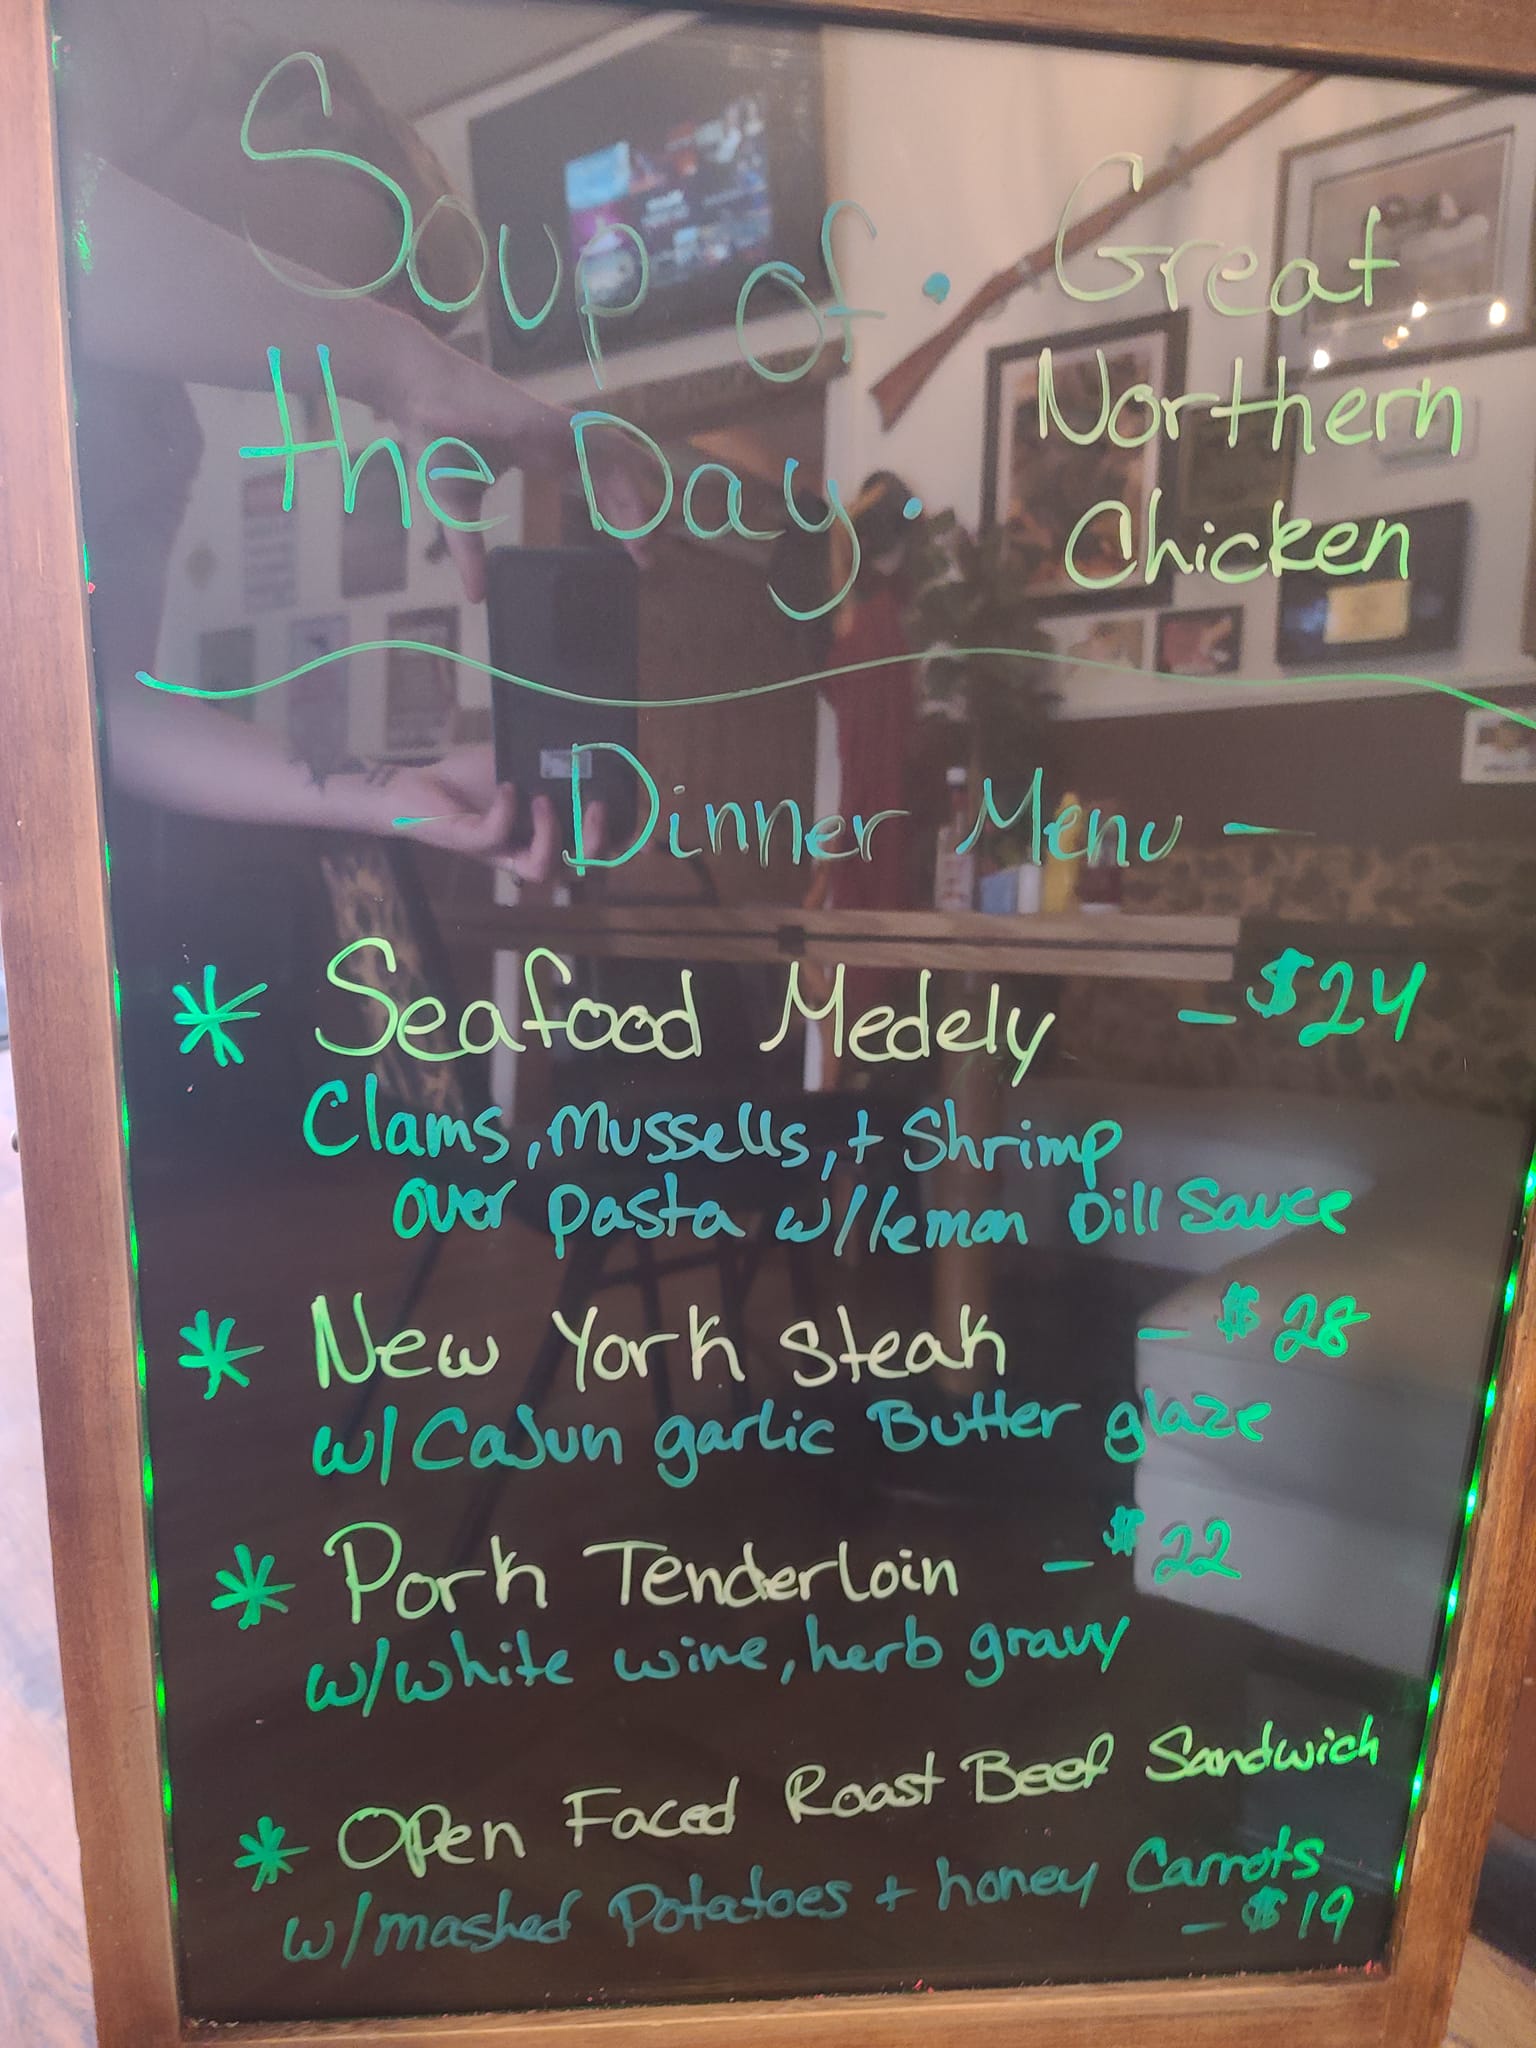 Soup of the Day: Great Northern Chicken
- Dinner Menu -
* Seafood Medely - $24
Clams, mussells, + Shrimp
over pasta w/lemon Dill Sauce
* New York Steak - $28
w/ Cajun garlic Butter glaze
* Pork Tenderloin - $22
w/white wine, herb gravy
* Open Faced Roast Beef Sandwich
w/mashed Potatoes + honey Carrots
- $19